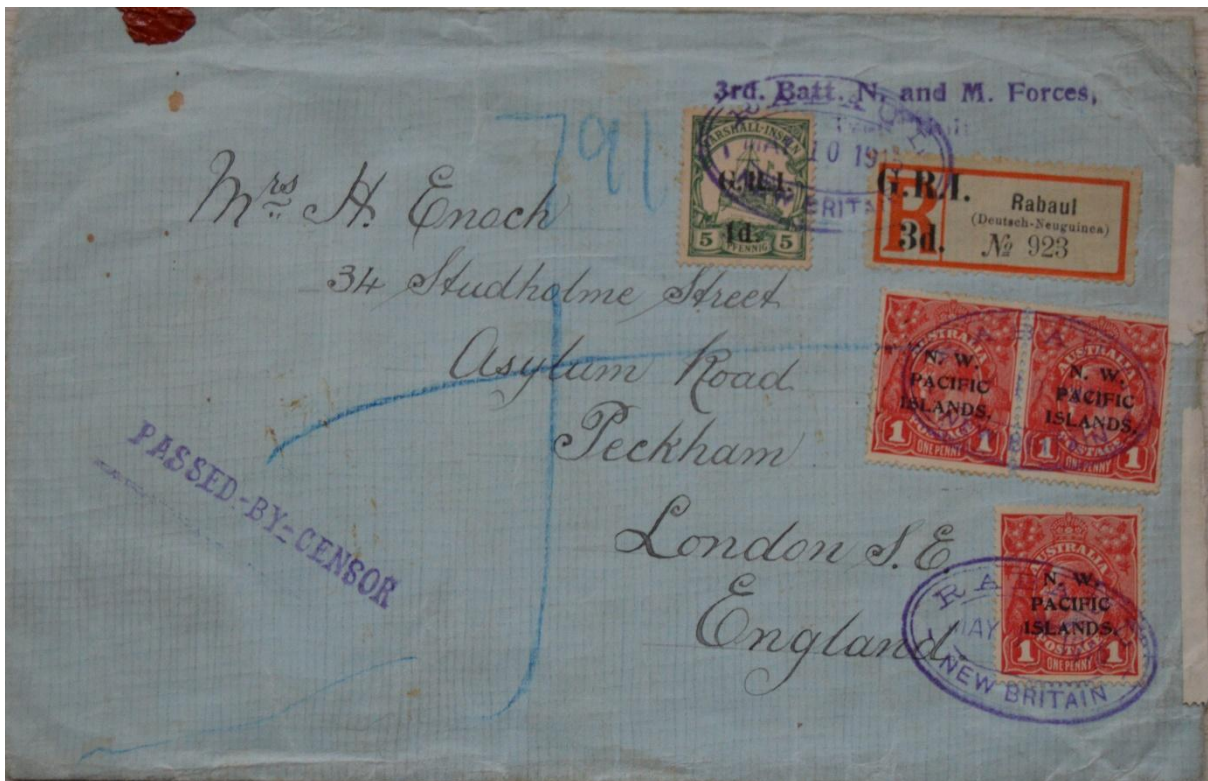 3rd. Batt. N. and M. Forces,
791
MARSHALL-INSELN
G.R.I.
1d.
5 PFENNIG 5
RABAUL
10 191
NEW BRITAIN
G.R.I.
R
3d.
Rabaul
(Deutsch-Neuguinea)
№ 923
Mrs H. Enoch
34 Studholme Street
Asylum Road
Peckham
London S.E.
England
PASSED-BY-CENSOR
AUSTRALIA
N. W.
PACIFIC
ISLANDS.
POSTAGE
1 ONE PENNY 1
AUSTRALIA
N. W.
PACIFIC
ISLANDS.
POSTAGE
1 ONE PENNY 1
AUSTRALIA
N. W.
PACIFIC
ISLANDS.
POSTAGE
1 ONE PENNY 1
RABAUL
MAY
NEW BRITAIN